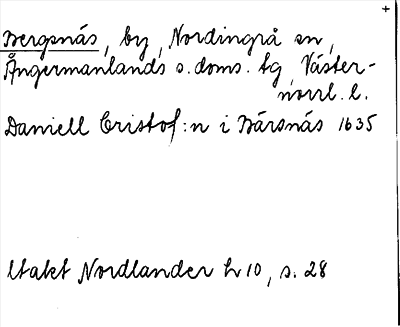 Bergsnäs, by, Nordingrå sn,
Ångermanlands s. doms. tg, Väster-
norrl. l.
Daniell Cristof:n i Bärsnäs 1635
Utakt Nordlander h 10, s. 28